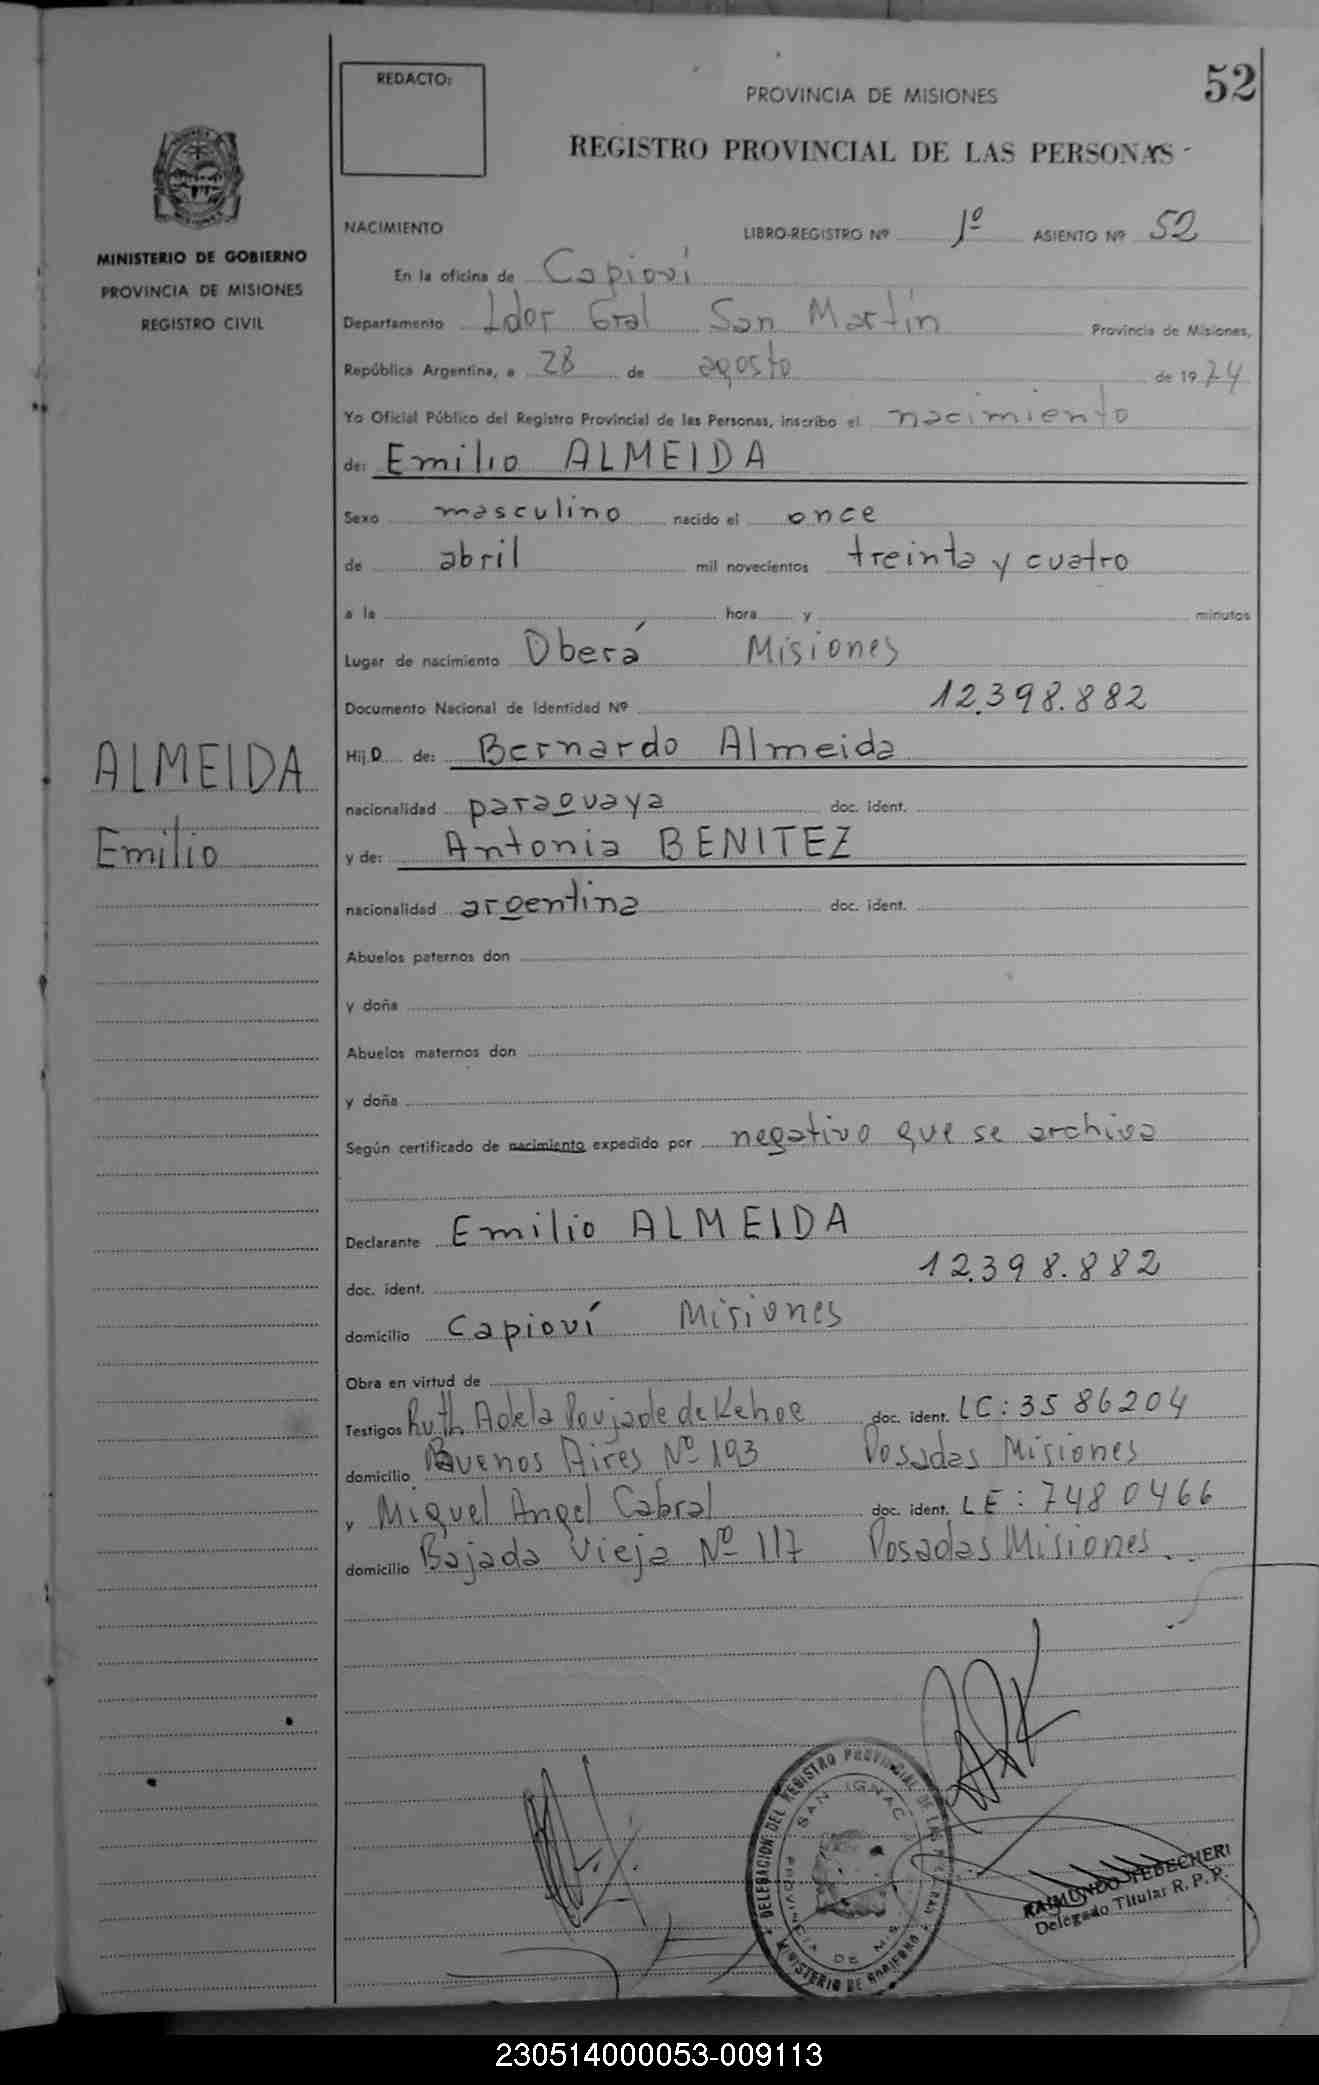 52
REDACTO:
PROVINCIA DE MISIONES
REGISTRO PROVINCIAL DE LAS PERSONAS
MINISTERIO DE GOBIERNO
PROVINCIA DE MISIONES
REGISTRO CIVIL
NACIMIENTO LIBRO-REGISTRO Nº 1º ASIENTO Nº 52
En la oficina de Capioví
Departamento Ldor Gral San Martín Provincia de Misiones,
República Argentina, a 28 de agosto de 1974
Yo Oficial Público del Registro Provincial de las Personas, inscribo el nacimiento
de: Emilio ALMEIDA
Sexo masculino nacido el once
de abril mil novecientos treinta y cuatro
a la hora y minutos
Lugar de nacimiento Oberá Misiones
Documento Nacional de Identidad Nº 12.398.882
ALMEIDA
Emilio
Hijo de: Bernardo Almeida
nacionalidad paraguaya doc. ident.
y de: Antonia BENITEZ
nacionalidad argentina doc. ident.
Abuelos paternos don
y doña
Abuelos maternos don
y doña
Según certificado de nacimiento expedido por negativo que se archiva
Declarante Emilio ALMEIDA
doc. ident. 12.398.882
domicilio Capioví Misiones
Obra en virtud de
Testigos Ruth Adela Poujade de Kehoe doc. ident. LC: 3586204
domicilio Buenos Aires Nº 193 Posadas Misiones
y Miguel Angel Cabral doc. ident. LE: 7480466
domicilio Bajada Vieja Nº 117 Posadas Misiones.
DELEGACION DEL REGISTRO PROVINCIAL DE LAS PERSONAS
SAN IGNACIO
PROVINCIA DE MIS
MINISTERIO DE GOBIERNO
RAIMUNDO TEBECHERI
Delegado Titular R. P. P.
230514000053-009113